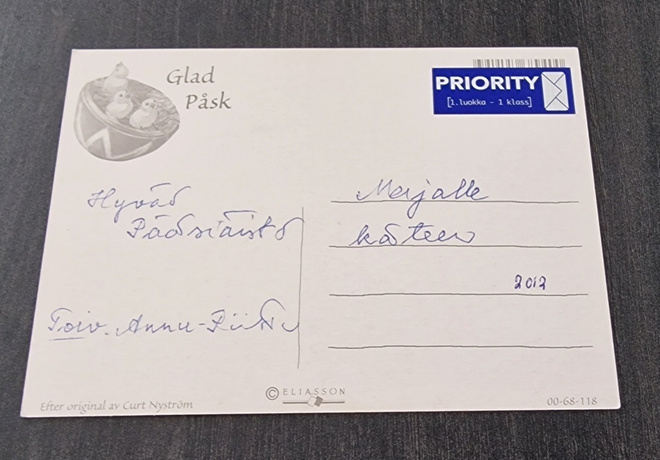 Glad
Påsk
PRIORITY
[1.luokka - 1 klass]
Hyvää
Pääsiäistä
Toiv. Annu-Riitta
Merjalle
käteen
2012
Efter original av Curt Nyström
© ELIASSON
00-68-118